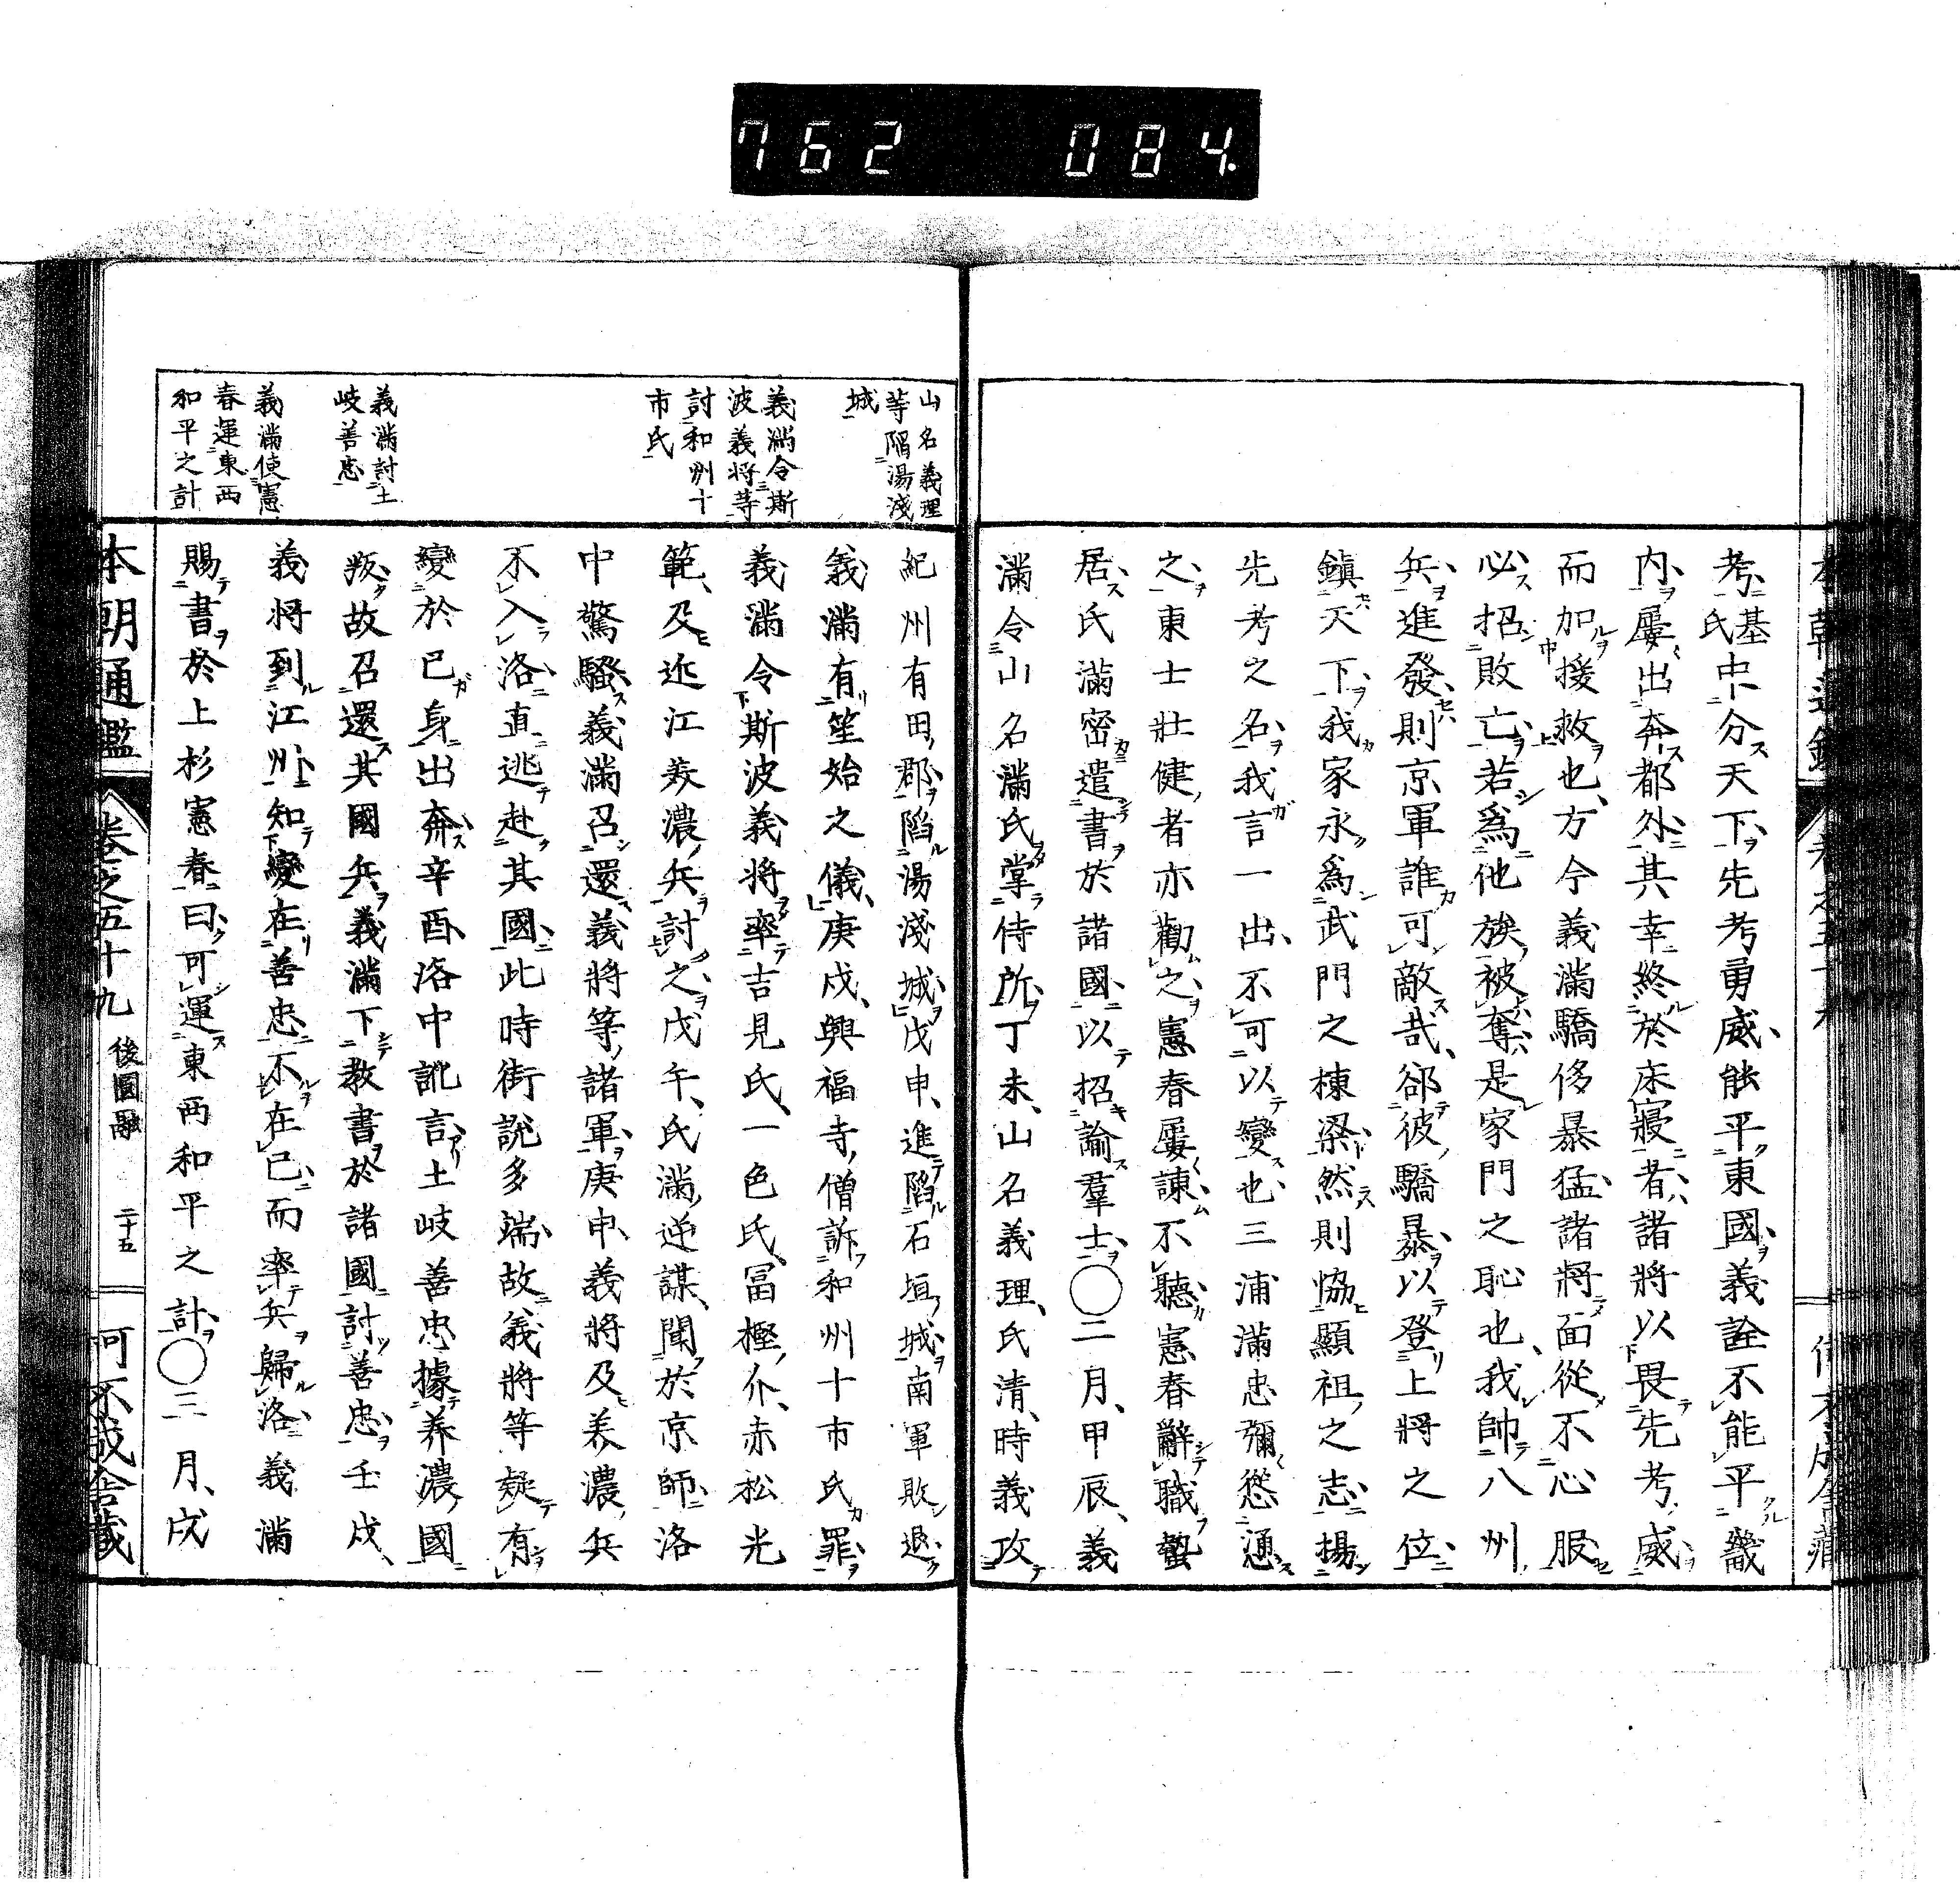 762 084
考基氏中分天下先考勇威能平東國義詮不能平畿
内屢出奔都外其幸終於床寢者諸將以畏先考威
而加援救也方今義滿驕侈暴猛諸將面從不心服
必招敗亡若爲他族被奪是家門之恥也我帥八州
兵進發則京軍誰可敵哉郤彼驕暴以登上將之位
鎮天下我家永爲武門之棟梁然則恊顯祖之志揚
先考之名我言一出不可以變也三浦滿忠彌慫慂
之東士壯健者亦勸之憲春屢諫不聽憲春辭職蟄
居氏滿密遣書於諸國以招諭羣士〇二月甲辰義
滿令山名滿氏掌侍所丁未山名義理氏清時義攻
山名義理
等陷湯淺
城
義滿令斯
波義將等
討和州十
市氏
義滿討土
岐善忠
義滿使憲
春運東西
和平之計
紀州有田郡陷湯淺城戊申進陷石垣城南軍敗退
義滿有笙始之儀庚戌興福寺僧訴和州十市氏罪
義滿令斯波義將率吉見氏一色氏冨樫介赤松光
範及近江美濃兵討之戊午氏滿逆謀聞於京師洛
中驚騷義滿召還義將等諸軍庚申義將及美濃兵
不入洛直逃赴其國此時街說多端故義將等疑有
變於己身出奔辛酉洛中訛言土岐善忠據美濃國
叛故召還其國兵義滿下教書於諸國討善忠壬戌
義將到江州知變在善忠不在己而率兵歸洛義滿
賜書於上杉憲春曰可運東西和平之計〇三月戊
本朝通鑑 卷之五十九 後圓融 二十五 可不成舍藏